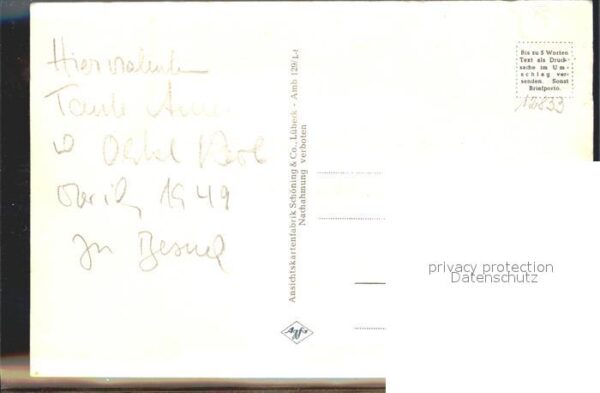 Hier
Tante
Onkel
1949
In Besuch
Ansichtskartenfabrik Schöning & Co., Lübeck - Amb 129/L-t
Nachahmung verboten
Agfa
Bis zu 5 Worten
Text als Druck-
sache im Um-
schlag ver-
senden. Sonst
Briefporto.
12833
privacy protection
Datenschutz